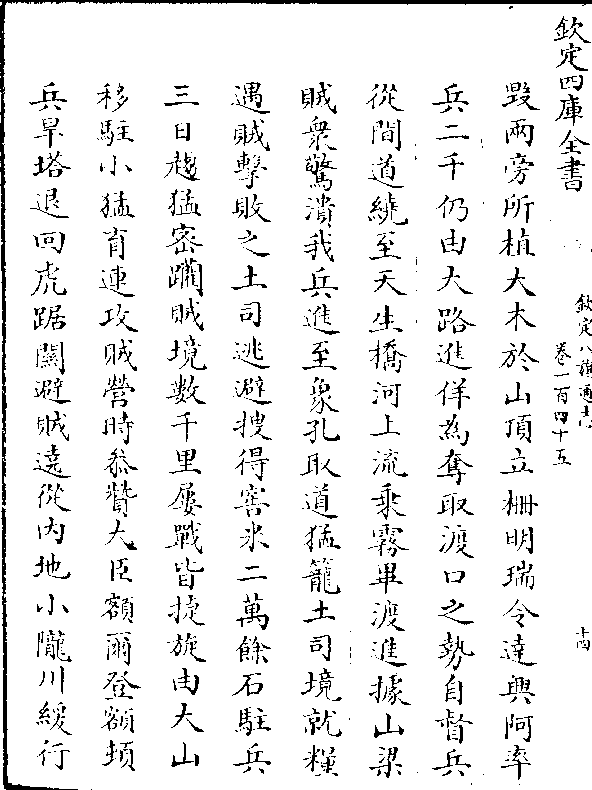 欽定四庫全書
欽定八旗通志
卷一百四十五
十四
毀兩旁所植大木於山頂立柵明瑞令達興阿率
兵二千仍由大路進佯為奪取渡口之勢自督兵
從間道繞至天生橋河上流乘霧畢渡進據山梁
賊衆驚潰我兵進至象孔取道猛籠土司境就糧
遇賊擊敗之土司逃避搜得窖米二萬餘石駐兵
三日趨猛密躪賊境數千里屢戰皆捷旋由大山
移駐小猛育連攻賊營時叅贊大臣額爾登額頓
兵旱塔退回虎踞關避賊遠從内地小隴川緩行